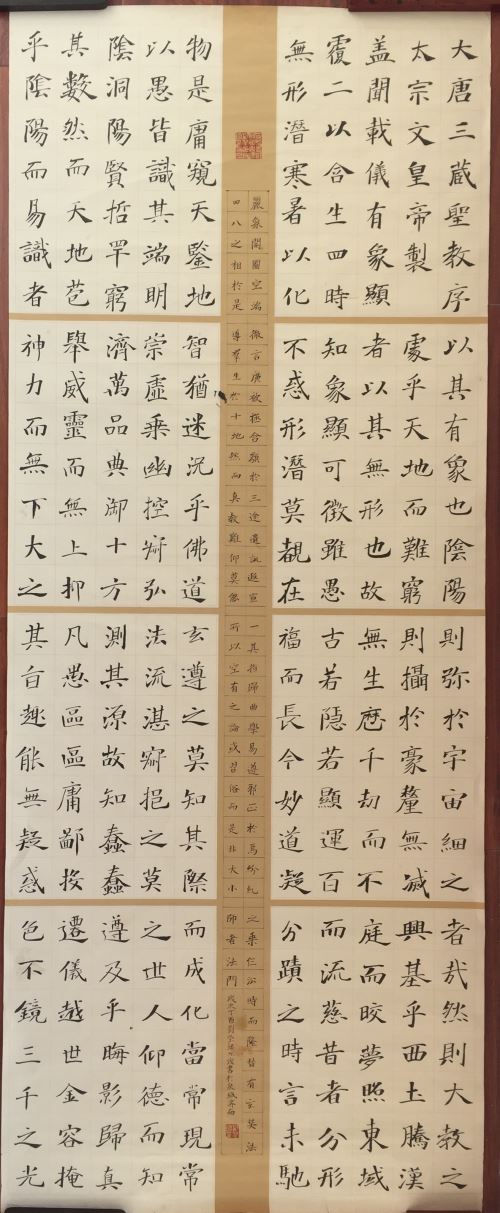 大唐三蔵聖教序
太宗文皇帝製
盖聞載儀有象顯
覆二以含生四時
無形潛寒暑以化
物是庸窺天鑒地
以愚皆識其端明
陰洞陽賢哲罕窮
其數然而天地苞
乎陰陽而易識者
以其有象也陰陽
處乎天地而難窮
者以其無形也故
知象顯可徵雖愚
不惑形潛莫覩在
智猶迷況乎佛道
崇虛乘幽控寂弘
濟萬品典御十方
舉威靈而無上抑
神力而無下大之
則弥於宇宙細之
則攝於豪釐無滅
無生歷千劫而不
古若隱若顯運百
福而長今妙道凝
玄遵之莫知其際
法流湛寂挹之莫
測其源故知蠢蠢
凡愚區區庸鄙投
其旨趣能無疑惑
者哉然則大教之
興基乎西土騰漢
庭而晈夢照東域
而流慈昔者分形
分蹟之時言未馳
而成化當常現常
之世人仰德而知
遵及乎晦影歸真
遷儀越世金容掩
色不鏡三千之光
麗象開圖空端
四八之相於是
微言廣被拯含類於三途遺訓遐宣
導羣生於十地然而真教難仰莫能
一其指歸曲學易遵邪正於焉紛糺
所以空有之論或習俗而是非大小
之乘乍沿時而隆替有玄奘法
師者法門 歲次丁酉